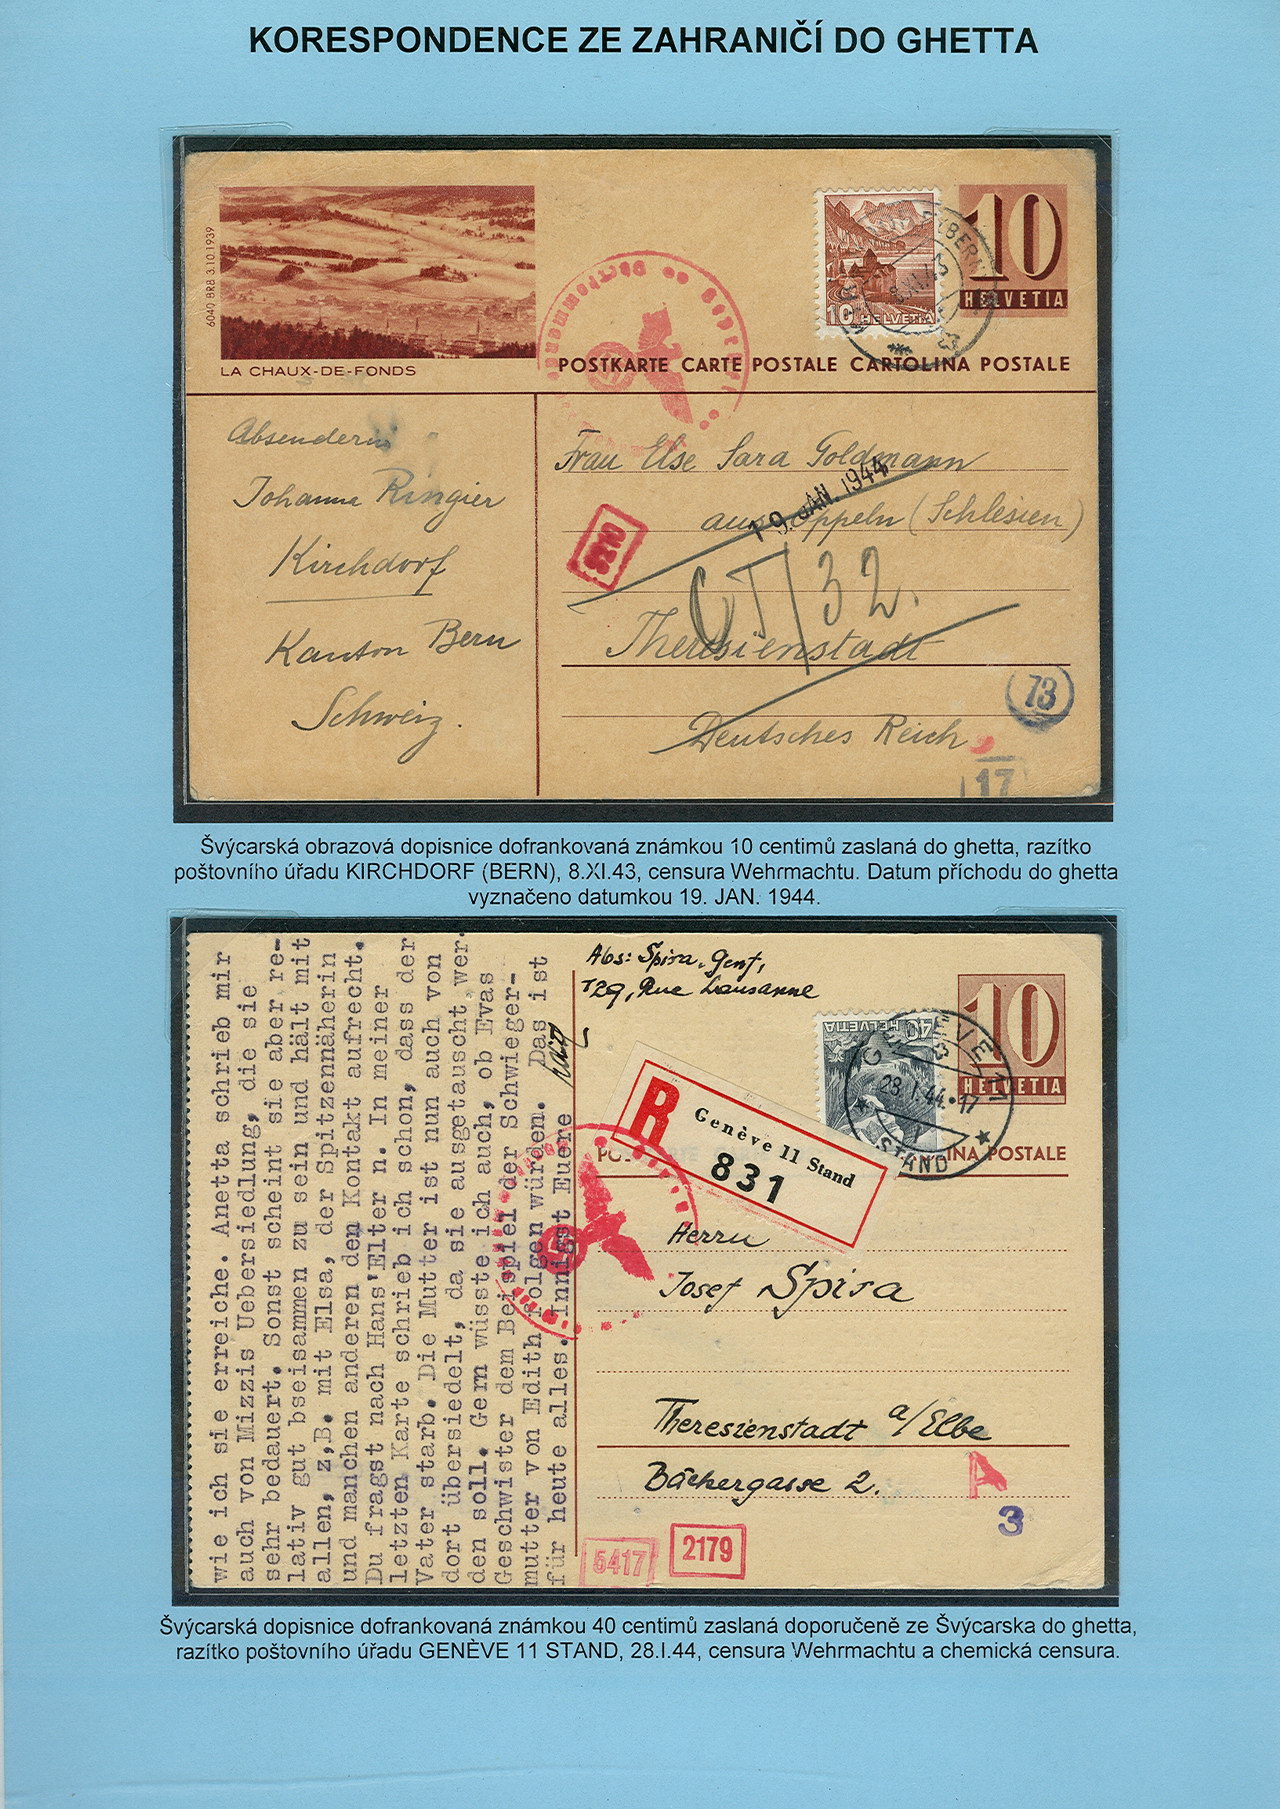 KORESPONDENCE ZE ZAHRANIČÍ DO GHETTA
6040 BRB 3.10.1939
LA CHAUX-DE-FONDS
10
HELVETIA
10
HELVETIA
8.XI.43
POSTKARTE CARTE POSTALE CARTOLINA POSTALE
Absenderin
Johanna Ringier
Kirchdorf
Kanton Bern
Schweiz.
Frau Else Sara Goldmann
19. JAN. 1944
aus Oppeln (Schlesien)
CT/32.
Theresienstadt
Deutsches Reich
73
17
Švýcarská obrazová dopisnice dofrankovaná známkou 10 centimů zaslaná do ghetta, razítko
poštovního úřadu KIRCHDORF (BERN), 8.XI.43, censura Wehrmachtu. Datum příchodu do ghetta
vyznačeno datumkou 19. JAN. 1944.
wie ich sie erreiche. Anetta schrieb mir
auch von Mizzis Uebersiedlung, die sie
sehr bedauert. Sonst scheint sie aber re-
lativ gut bseisammen zu sein und hält mit
allen, z,B. mit Elsa, der Spitzennäherin
und manchen anderen den Kontakt aufrecht.
Du fragst nach Hans'Elter n. In meiner
letzten Karte schrieb ich schon, dass der
Vater starb. Die Mutter ist nun auch von
dort übersiedelt, da sie ausgetauscht wer-
den soll. Gern wüsste ich auch, ob Evas
Geschwister dem Beispiel der Schwieger-
mutter von Edith folgen würden. Das ist
für heute alles. Innigst Euere
Abs: Spira. Genf,
129, Rue Lausanne
40
HELVETIA
10
HELVETIA
GENÈVE 11
28.I.44.17
STAND
R
Genève 11 Stand
831
INA POSTALE
Herrn
Josef Spira
Theresienstadt a/Elbe
Bäckergasse 2.
A
3
5417
2179
Švýcarská dopisnice dofrankovaná známkou 40 centimů zaslaná doporučeně ze Švýcarska do ghetta,
razítko poštovního úřadu GENÈVE 11 STAND, 28.I.44, censura Wehrmachtu a chemická censura.